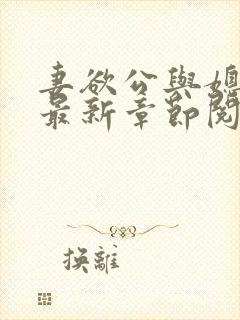 妻欲公與媳
最新章節閱
換離